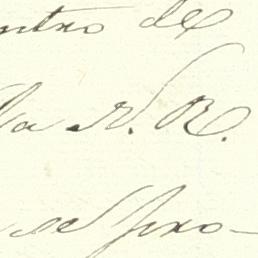 ntro de
la N. R.
se pro-